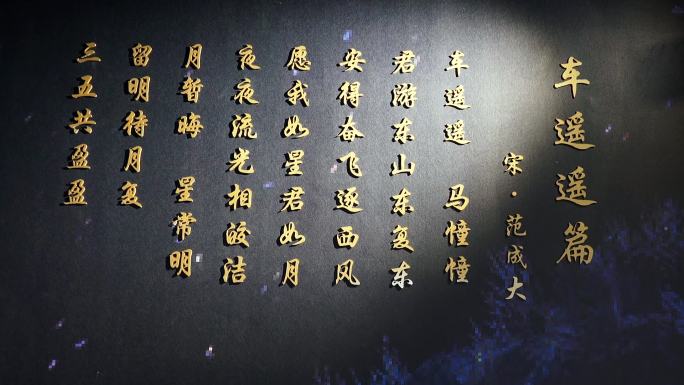 车遥遥篇
宋·范成大
车遥遥 马憧憧
君游东山东复东
安得奋飞逐西风
愿我如星君如月
夜夜流光相皎洁
月暂晦 星常明
留明待月复
三五共盈盈